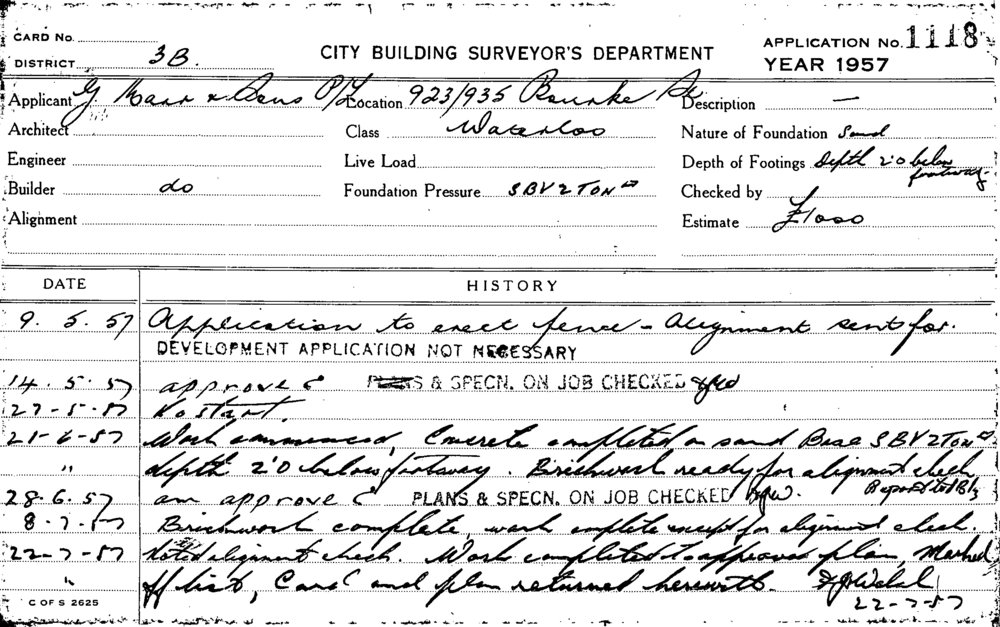 CARD No.
DISTRICT 3B.
CITY BUILDING SURVEYOR'S DEPARTMENT
APPLICATION No. 1118
YEAR 1957
Applicant G & Sons P/L Location 923/935 Bourke St. Description —
Architect Class Waterloo Nature of Foundation Sand
Engineer Live Load Depth of Footings Depth 2'0 below footway.
Builder do Foundation Pressure SBV 2 TON Checked by
Alignment Estimate £1000
DATE HISTORY
9. 5. 57 Application to erect fence - Alignment sent for.
DEVELOPMENT APPLICATION NOT NECESSARY
14. 5. 57 approved PLANS & SPECN. ON JOB CHECKED
27-5-57 No start.
21-6-57 Work commenced, Concrete completed on sand Base SBV 2 TON
" depth 2'0 below footway. Brickwork ready for alignment check
Reported to
28.6.57 am approved PLANS & SPECN. ON JOB CHECKED
8-7-57 Brickwork complete, work complete except for alignment check.
22-7-57 Noted alignment check. Work completed to approved plan, Marked
" off list, Card and plan returned herewith.
22-7-57
C OF S 2625